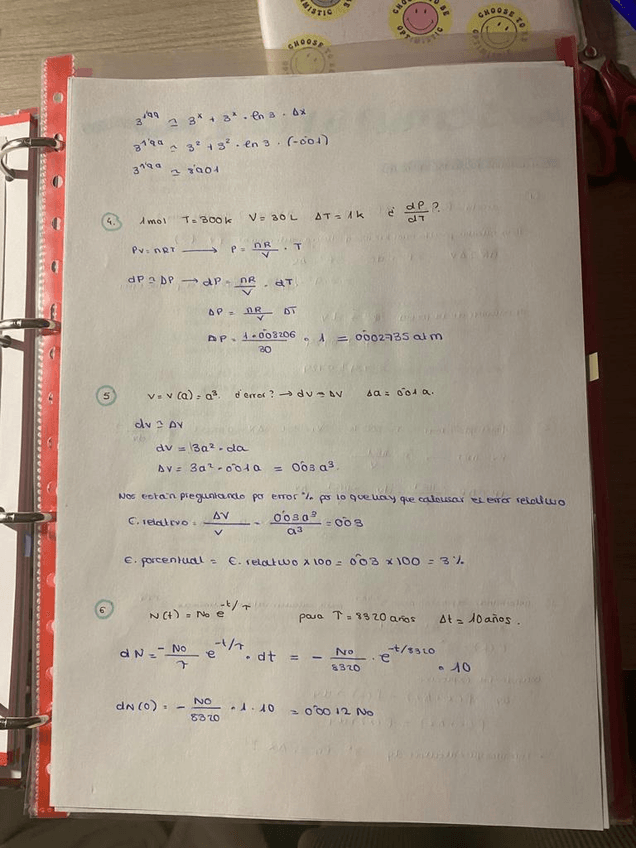 CHOOSE TO BE OPTIMISTIC
CHOOSE TO BE OPTIMISTIC
CHOOSE TO BE
3^1'99 ≃ 3^x + 3^x · ln 3 · Δx
3^1'99 ≃ 3² + 3² · ln 3 · (-0'01)
3^1'99 ≃ 8'901
4. 1mol T=300k V=30L ΔT=1k ¿ dP/dT ?
PV=nRT ⟶ P = nR/V · T
dP ≃ ΔP → dP = nR/V · dT
ΔP = nR/V ΔT
ΔP = 1·0'08206/30 · 1 = 0'002735 atm
5 V=V(a)=a³ ¿error? → dv ≃ ΔV Δa = 0'01a.
dv ≃ Δv
dv = 3a² · da
Δv = 3a² · 0'01a = 0'03a³.
Nos están preguntando por error % por lo que hay que calcular el error relativo
E. relativo = ΔV/V = 0'03a³/a³ = 0'03
E. porcentual = E. relativo × 100 = 0'03 × 100 = 3%
6 N(t) = No e^-t/τ para T = 8320 años Δt = 10 años.
dN = -No/τ e^-t/τ · dt = - No/8320 · e^-t/8320 · 10
dN(0) = - No/8320 · 1 · 10 = 0'0012 No